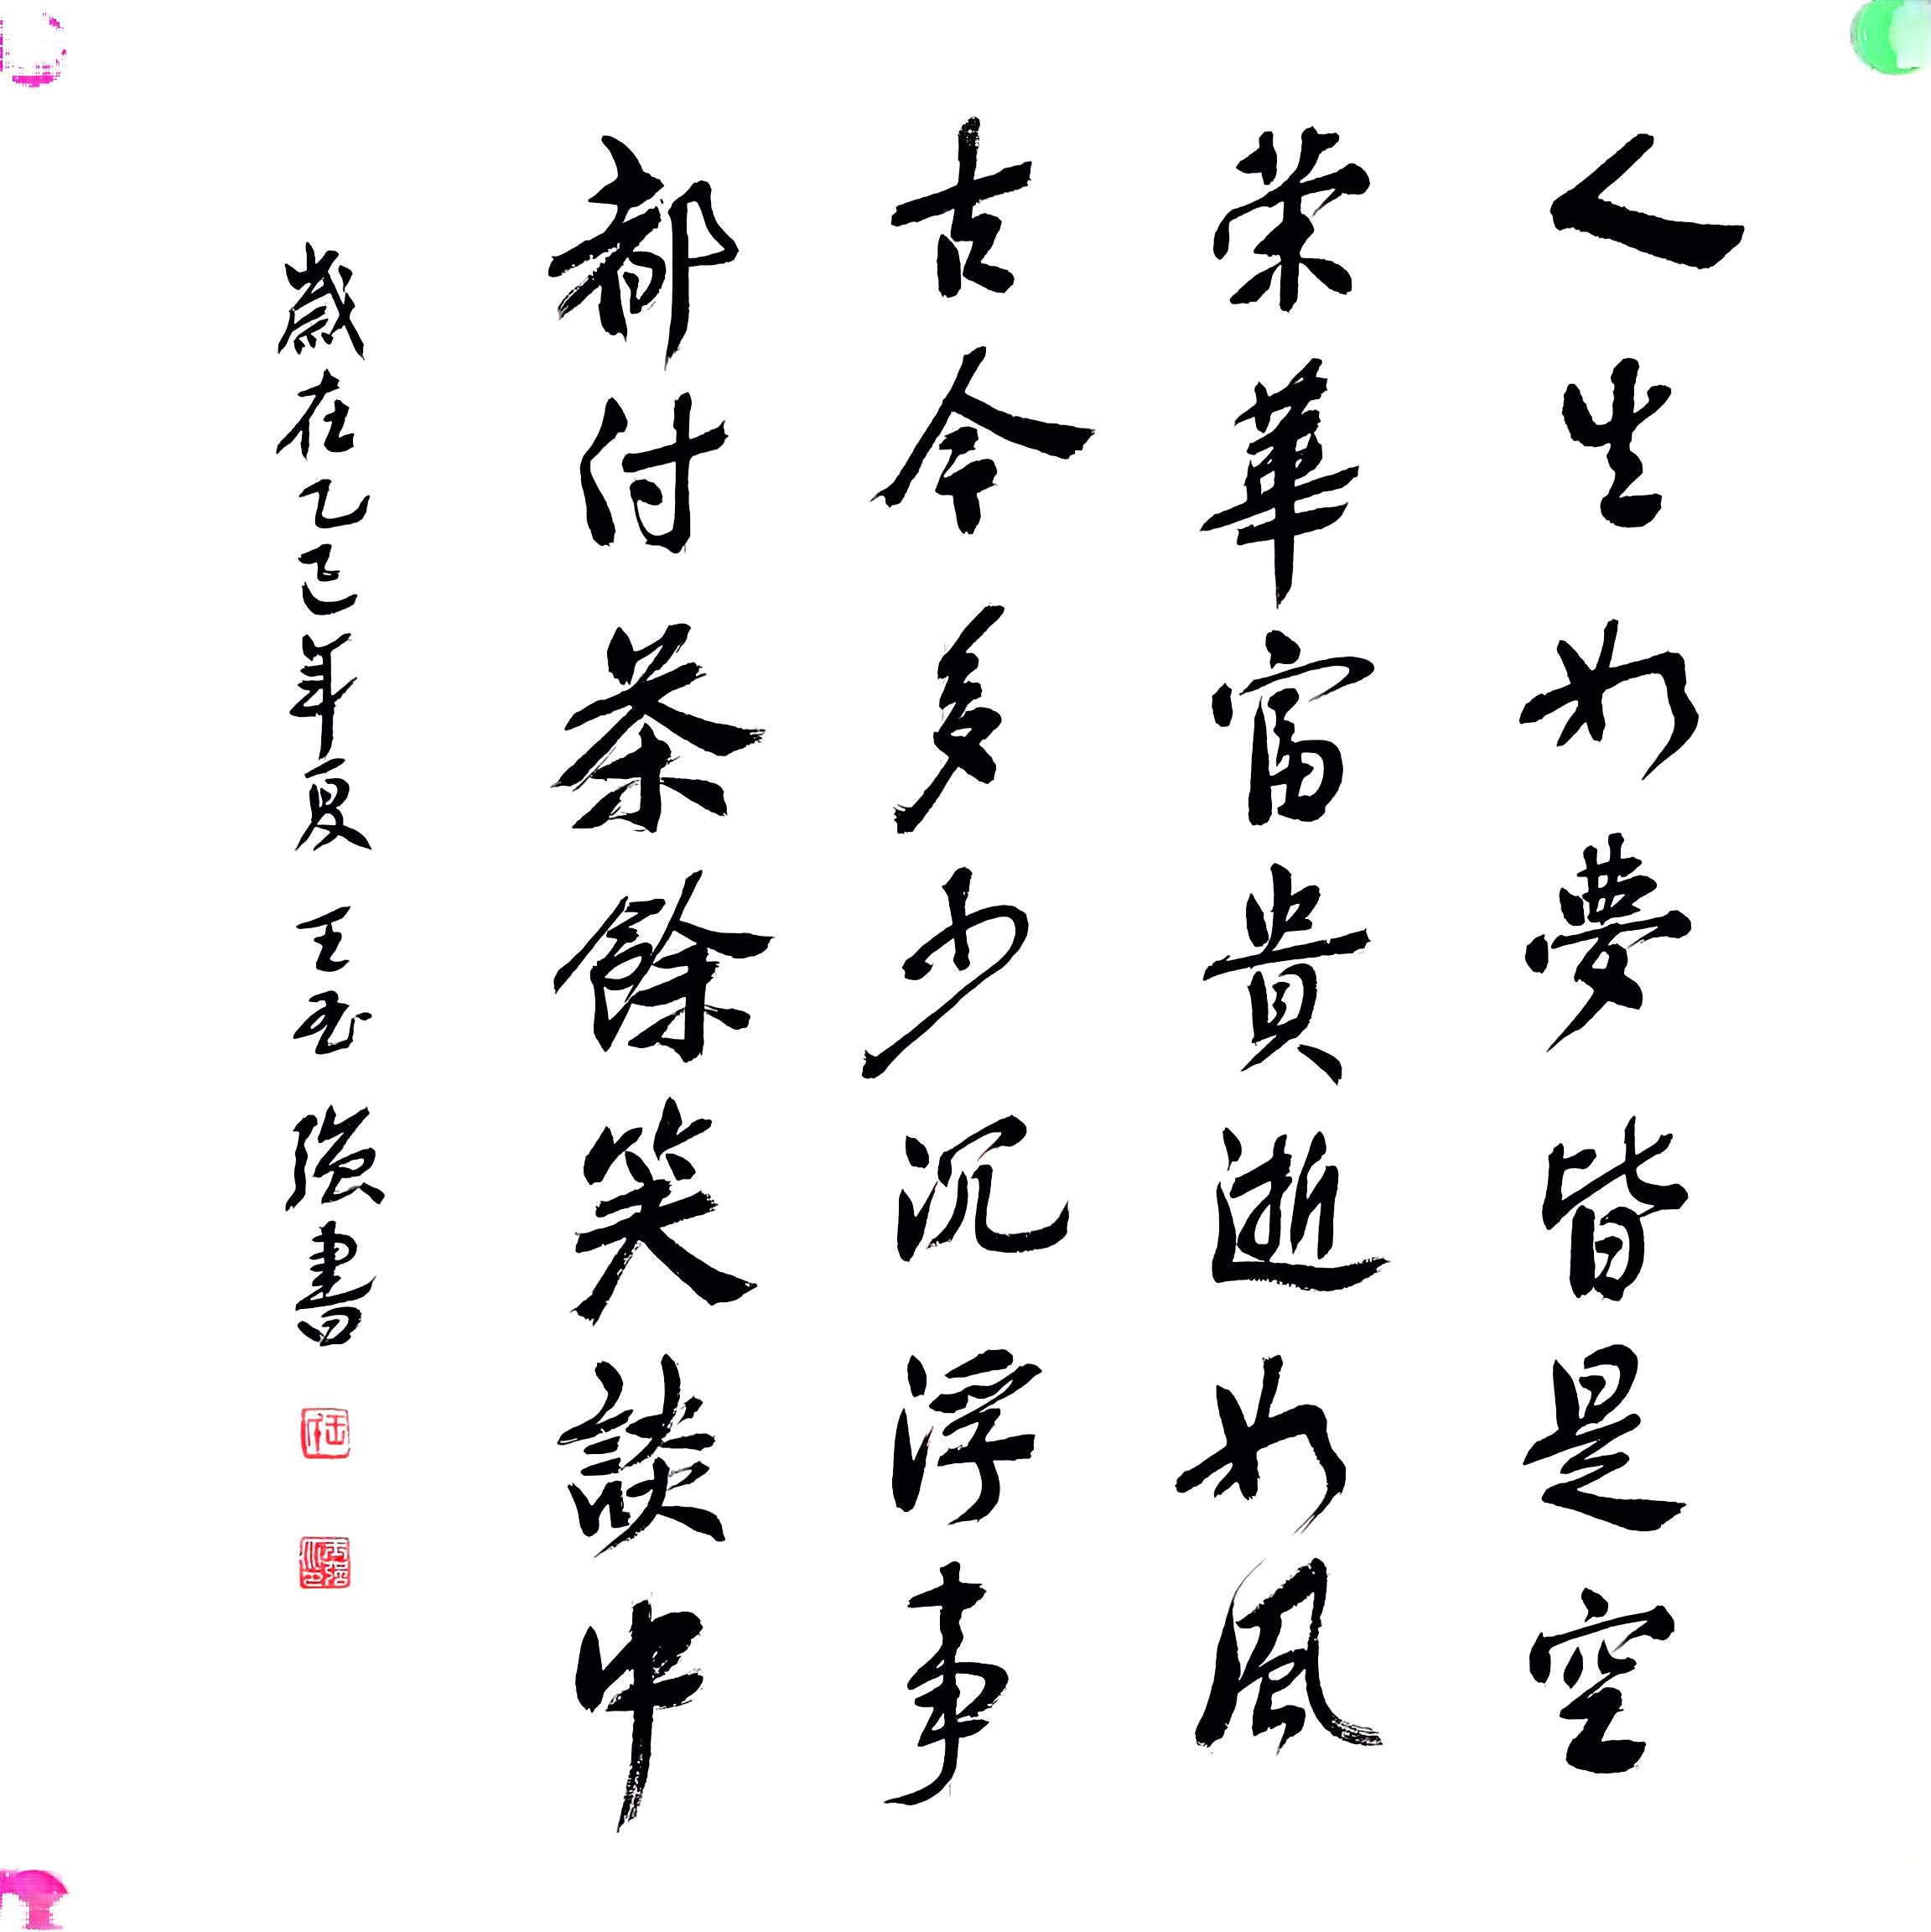 人生如夢皆是空
榮華富貴逝如風
古今多少沉浮事
都付茶餘笑談中
歲在乙巳年夏 王玉強書